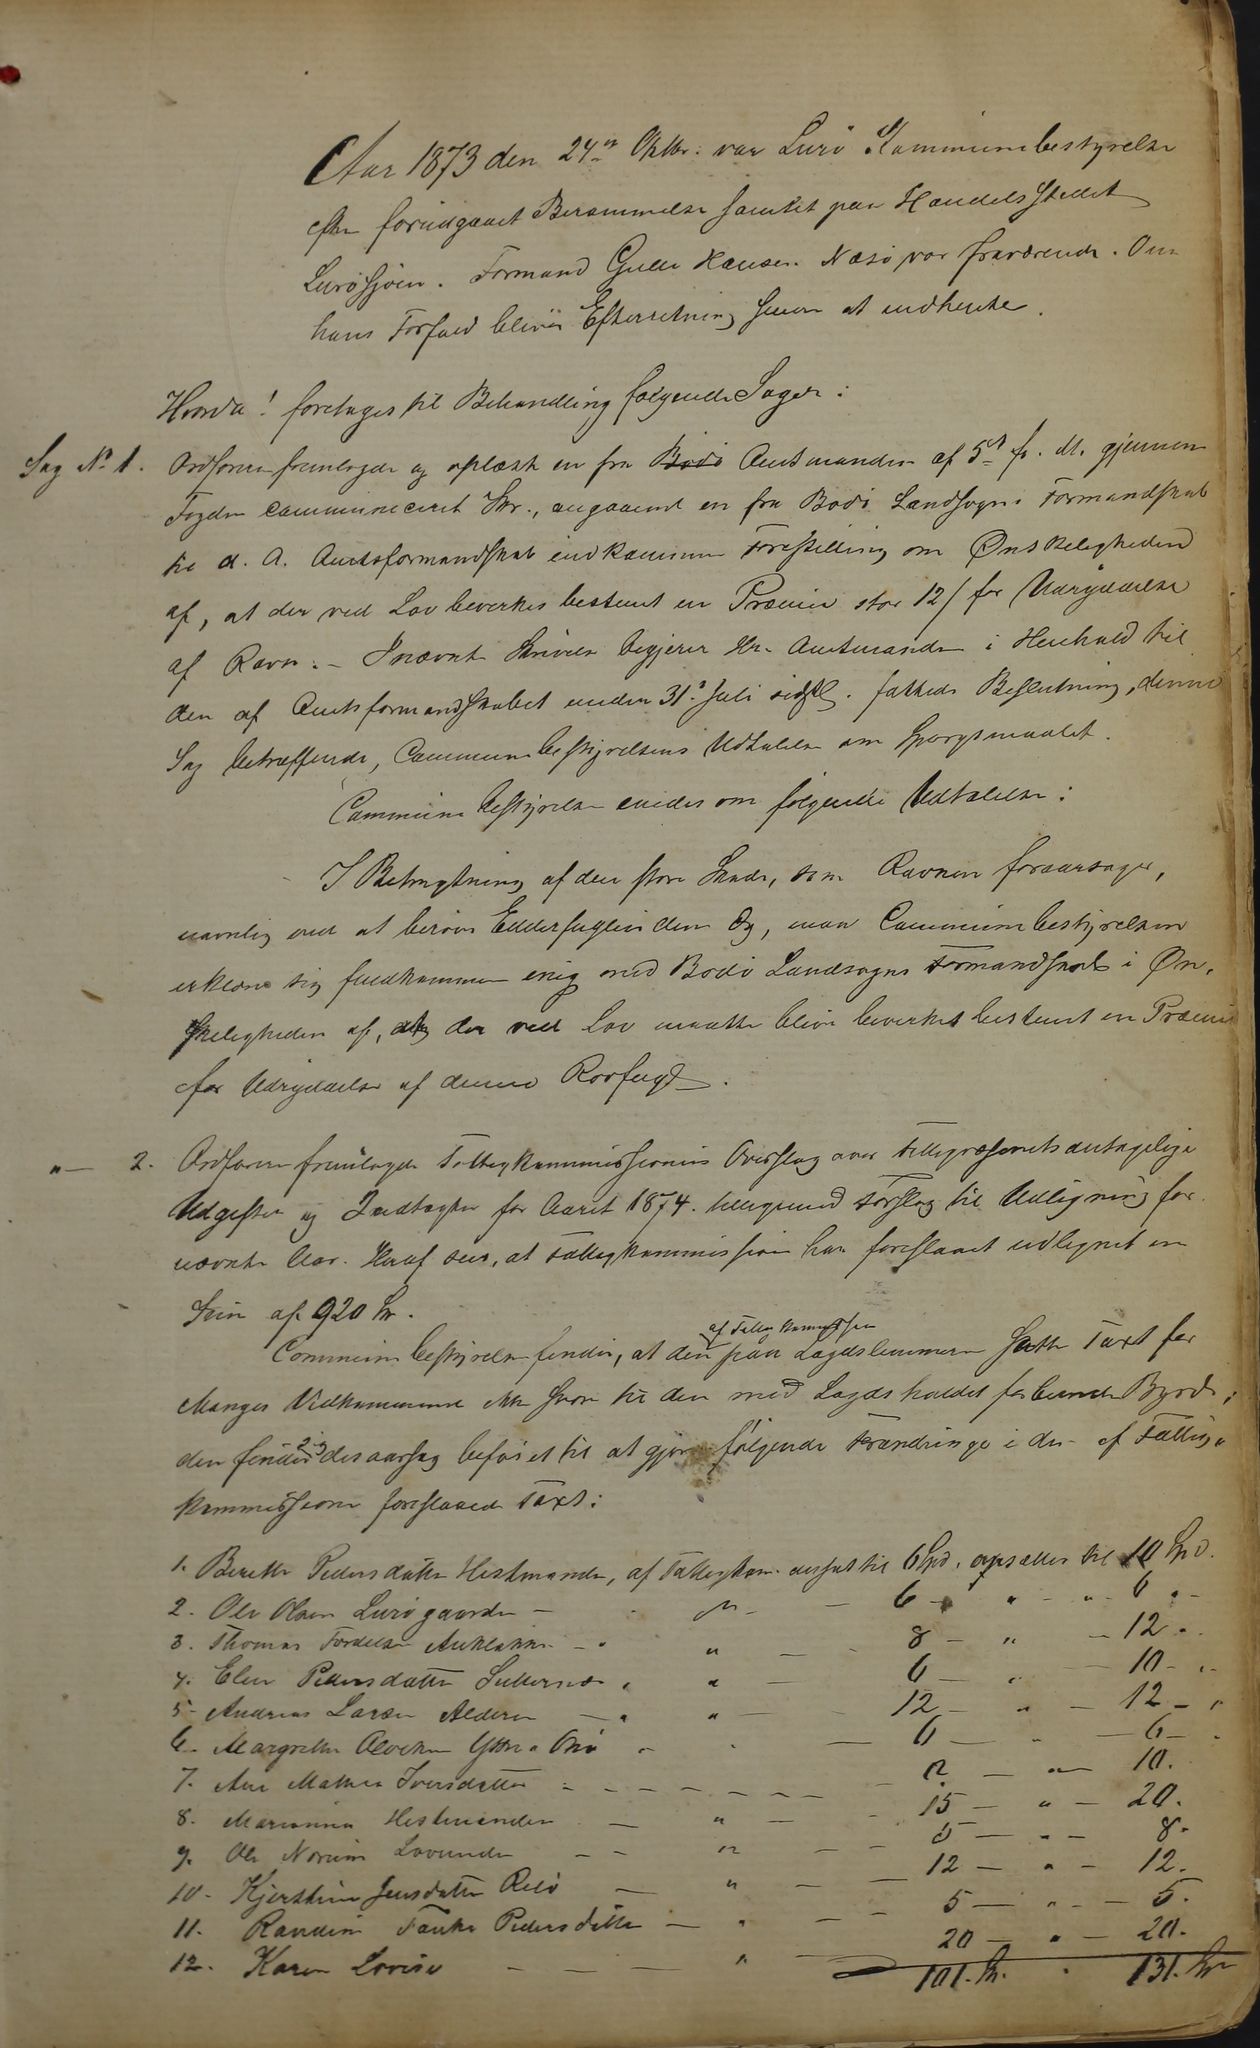 Aar 1873 den 24de Oktbr. var Lurö Kommunebestyrelse
efter forudgaaet Berammelse samlet paa Handelsstedet
Lurösjöen. Formand Hansen Næsö var fraværende. Om
hans Forfald bliver Efterretning senere at indhente.
Hvorda! foretages til Behandling følgende Sager:
Sag No 1. Ordføreren fremlagde og oplæste en fra Bodö Amtmanden af 5te f. M. gjennem
Fogden communiceret Skr., angaaende en fra Bodö Landsogns Formandskab
til d. A. Amtsformandskab indkommen Forestilling om Ønskeligheden
af, at der ved Lov bevirkes bestemt en Præmie stor 12 / for Udryddelse
af Ravn. – I nævnte Skrivelse begjærer Hr. Amtmanden i Henhold til
den af Amtsformandskabet under 31te Juli sidstl. fattede Beslutning, denne
Sag betræffende, Communebestyrelsens Udtalelse om Spørgsmaalet.
Communebestyrelsen enedes om følgende Udtalelse:
I Betragtning af den store Skade, som Ravnen foraarsager,
navnlig ved at beröve Edderfuglen dens Æg, maa Communebestyrelsen
erklære sig fuldkommen enig med Bodö Landsogns Formandskab i Øn-
skeligheden af, at der ved Lov maatte blive bevirket bestemt en Præmie
for Udryddelse af denne Rovfugl.
"— 2. Ordføreren fremlagde Fattigkommissionens Overslag over Fattigvæsenets antagelige
Udgifter og Indtægter for Aaret 1874. tilligemed Forslag til Udligning for
nævnte Aar. Heraf sees, at Fattigkommissionen har foreslaaet udlignet en
Sum af 920 Sp.
af Fattigkommissionen
Communebestyrelsen finder, at den paa Lægdslemmerne satte Taxt for
Manges Vedkommende ikke svare til den med Lægdsholdet forbundne Byrde;
den finder sig desaarsag beføiet til at gjøre følgende Forandringer i den af Fattig-
kommissionen foreslaaede Taxt:
1. Berethe Pedersdatter Hestmanden, af Fattigkom. ansat til 6 Spd. opsættes til 10 Spd.
2. Ole Olsen Lurögaarden — " — 6 — " — " 6 " —
3. Thomas — " — 8 — " — 12 "
4. Elen Pedersdatter " " — 6 — " — 10 — "
5. Andreas Larsen Alderen — " " — 12 — " — 12 — "
6. Margrethe — 6 — " — 6 — "
7. Ane Mathea Iversdatter — — — — 2 — " — 10.
8. Marianna Hestmanden — " — 15 — " — 20.
9. Ole Lovunden — — " — — 5 — " — 8.
10. Kjerstine Jensdatter — " — — 12 — " — 12.
11. Pedersdatter — " — — 5 — " — 5.
12. Karen Lovise — — — " — 20 — " — 20.
101. Sp. " 131. Sp